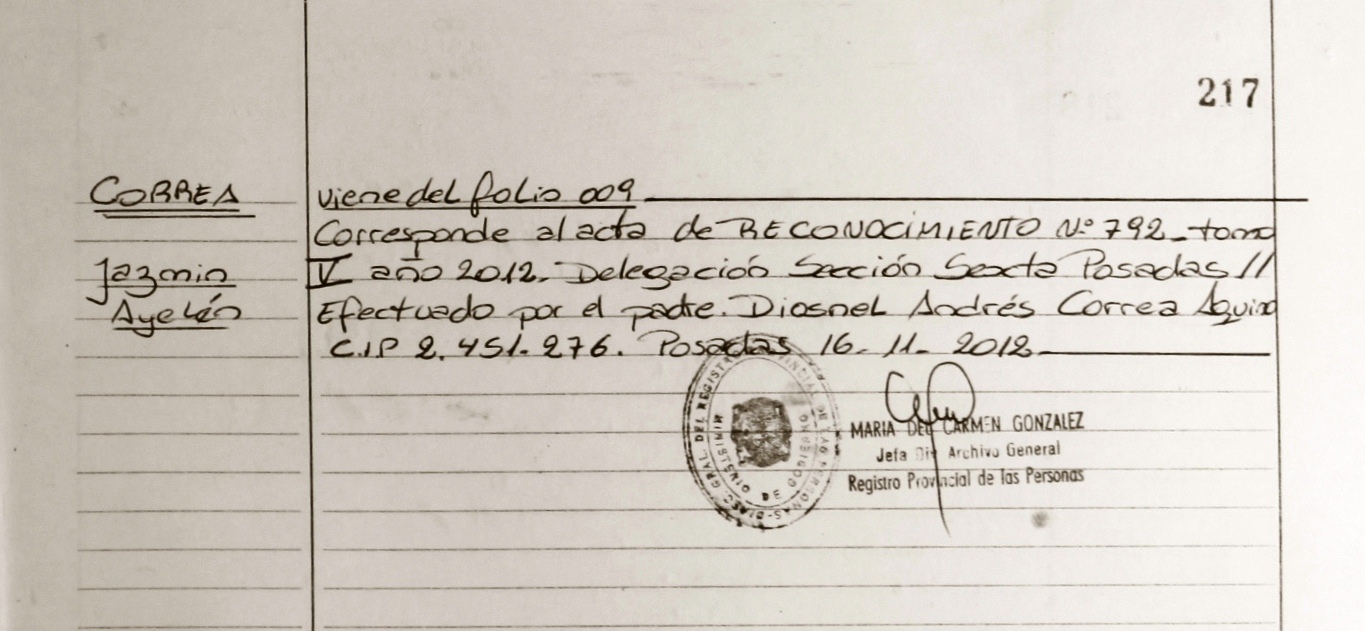 217
CORREA
Jazmin
Ayelén
viene del folio 009
Corresponde al acta de RECONOCIMIENTO Nº 792 - tomo
V año 2012. Delegación Sección Sexta Posadas //
Efectuado por el padre. Diosnel Andrés Correa Aquino
C.I.P 2.451.276. Posadas 16-11-2012
MARIA DEL CARMEN GONZALEZ
Jefa Div Archivo General
Registro Provincial de las Personas
MINISTERIO DE GOBIERNO